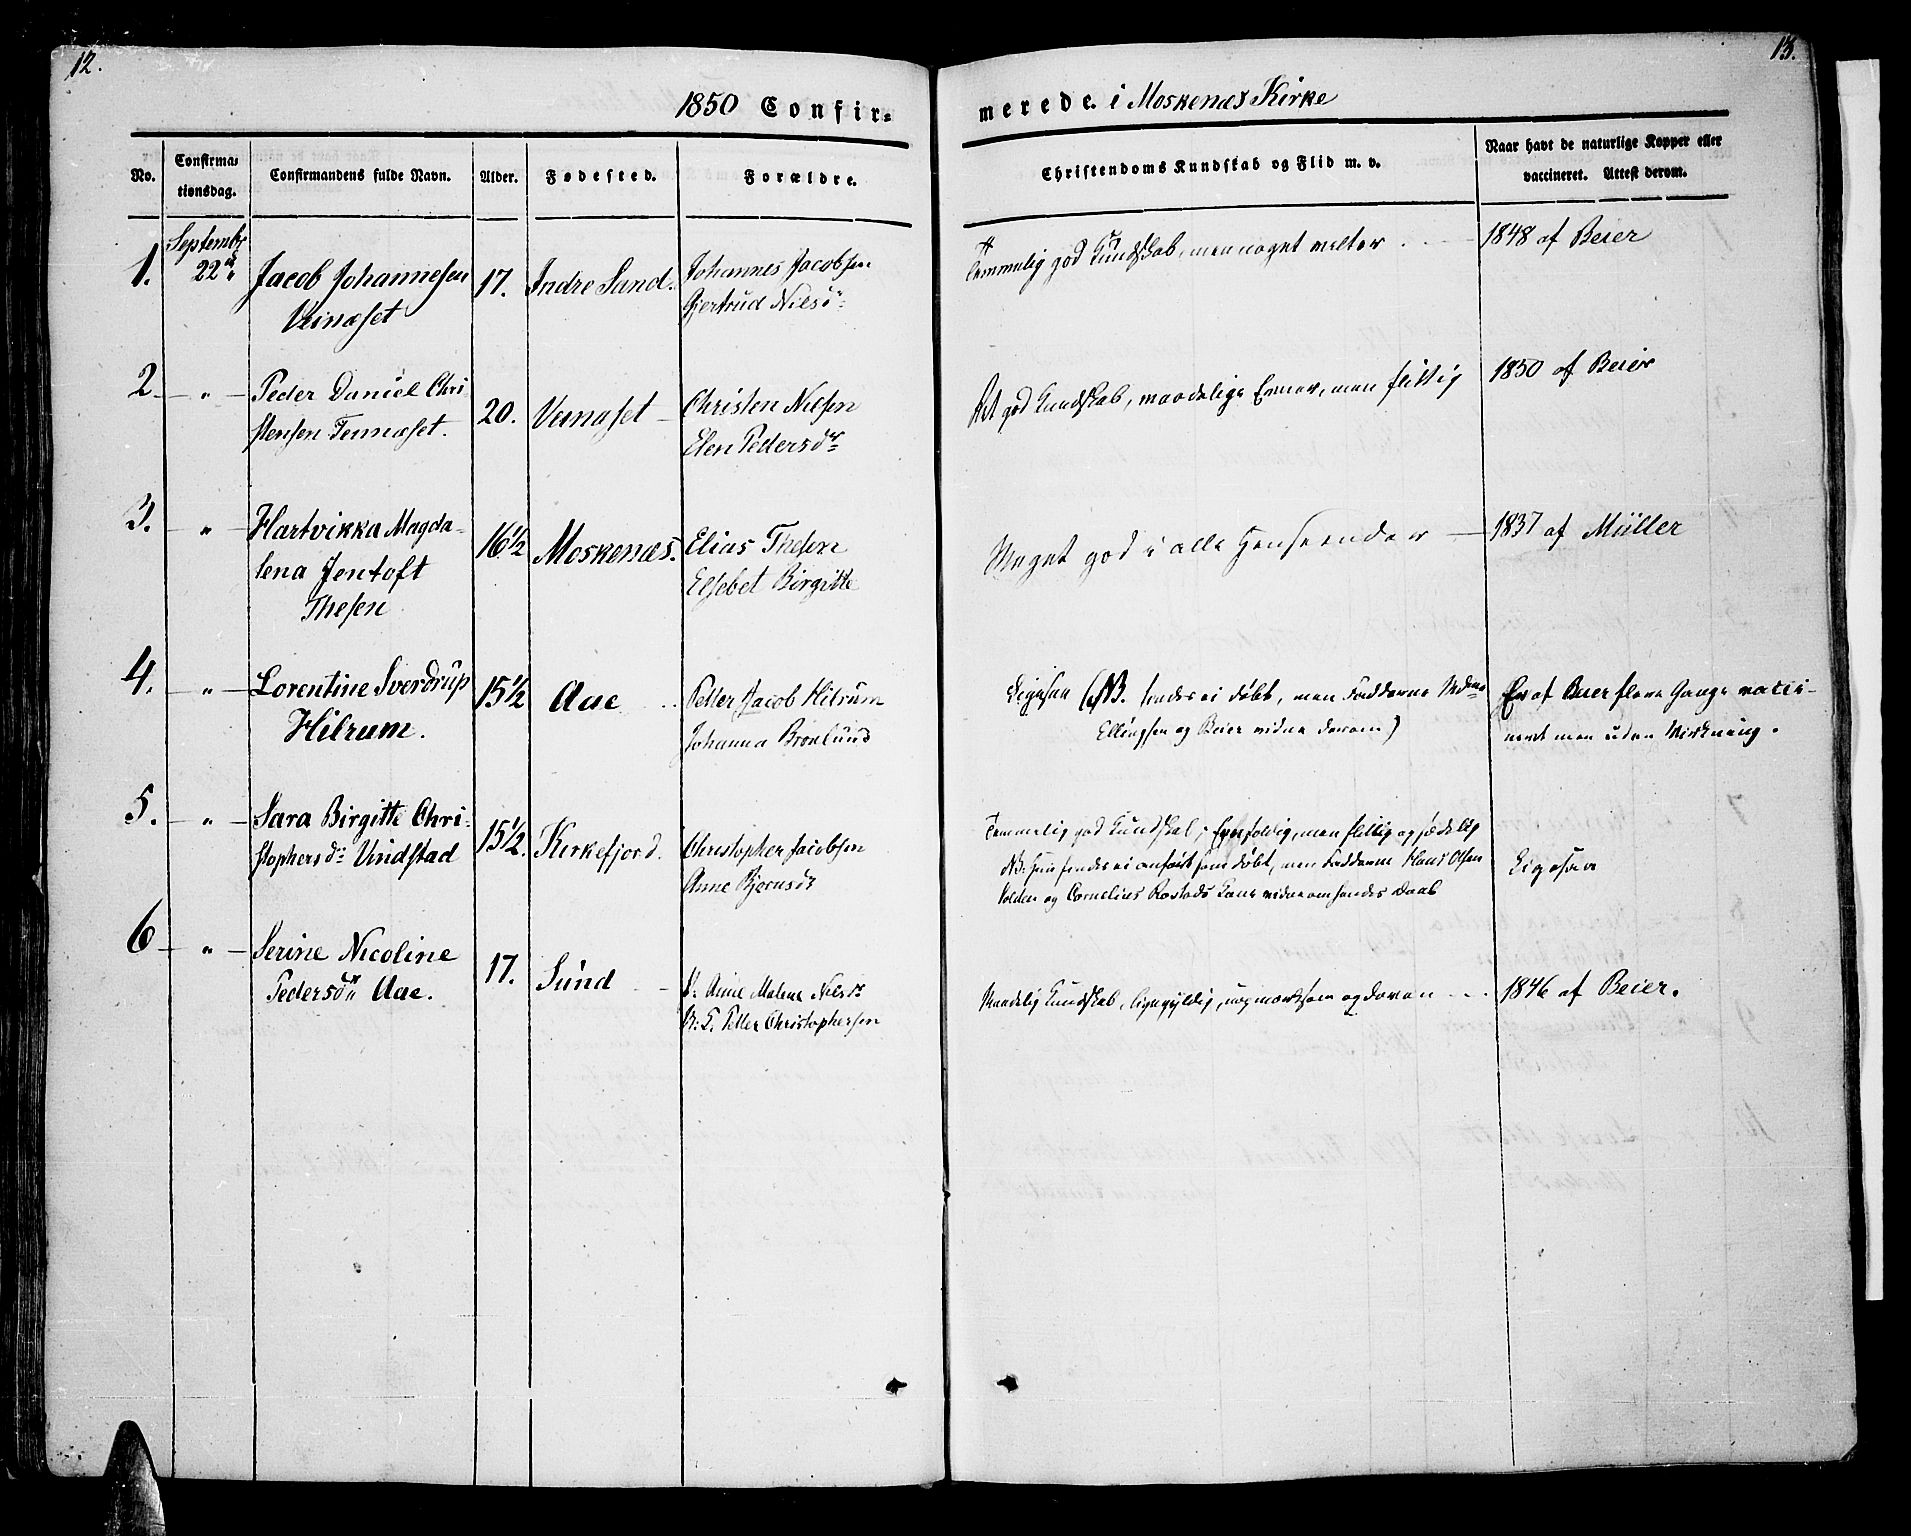 12.
13.
1850 Confir-
merede. i Moskenæs Kirke
No.
Confirma-
tionsdag.
Confirmandens fulde Navn.
Alder.
Fødested.
Forældre.
Christendoms Kundskab og Flid m. v.
Naar havt de naturlige Kopper eller
vaccineret. Attest derom.
1.
Septembr
22de
Jacob Johannesen
17.
Indre Sund.
Johannes Jacobsen
Gjertrud Nilsd
Temmelig god Kundskab, men noget
1848 af Beier
2
— " —
Peder Daniel Chri-
stensen Tennæset.
20.
Christen Nilsen
Elen Pedersdr
Ret god Kundskab, maadelige Evner, men flittig
1850 af Beier
3.
— " —
Hartvikka Magda-
lena Jentoft
Thesen
16½
Moskenæs.
Elias Thesen
Elsebet Birgitte
Meget god i alle Henseender —
1837 af Müller
4.
— " —
Lorentine Sverdrup
Hilrum.
15½
Aae
Petter Jacob Hilrum
Johanna Brønlund
Ligesaa (NB. findes ei døbt, men Fadderne
Ellingsen og Beier vidne derom)
Er af Beier flere Gange vacci-
neret men uden Virkning.
5.
— " —
Sara Birgitte Chri-
stophersdr Vindstad
15½.
Kirkefjord.
Christopher Jacobsen
Anne Bjørnsdr
Temmelig god Kundskab, Eenfoldig, men flittig og sædelig
NB. hun findes ei anført som døbt, men Fadderne Hans Olsen
og Cornelius Rostads Kone vidne om hendes Daab
Ligesaa
6
— " —
Serine Nicoline
Pedersdr Aae.
17.
Sund
Anne Malene Nilsdr
B. F. Petter Christophersen
Maadelig Kundskab, ligegyldig, uopmærksom og doven
1846 af Beier.